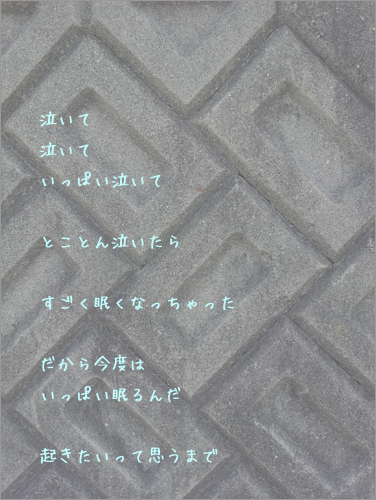 泣いて
泣いて
いっぱい泣いて
とことん泣いたら
すごく眠くなっちゃった
だから今度は
いっぱい眠るんだ
起きたいって思うまで